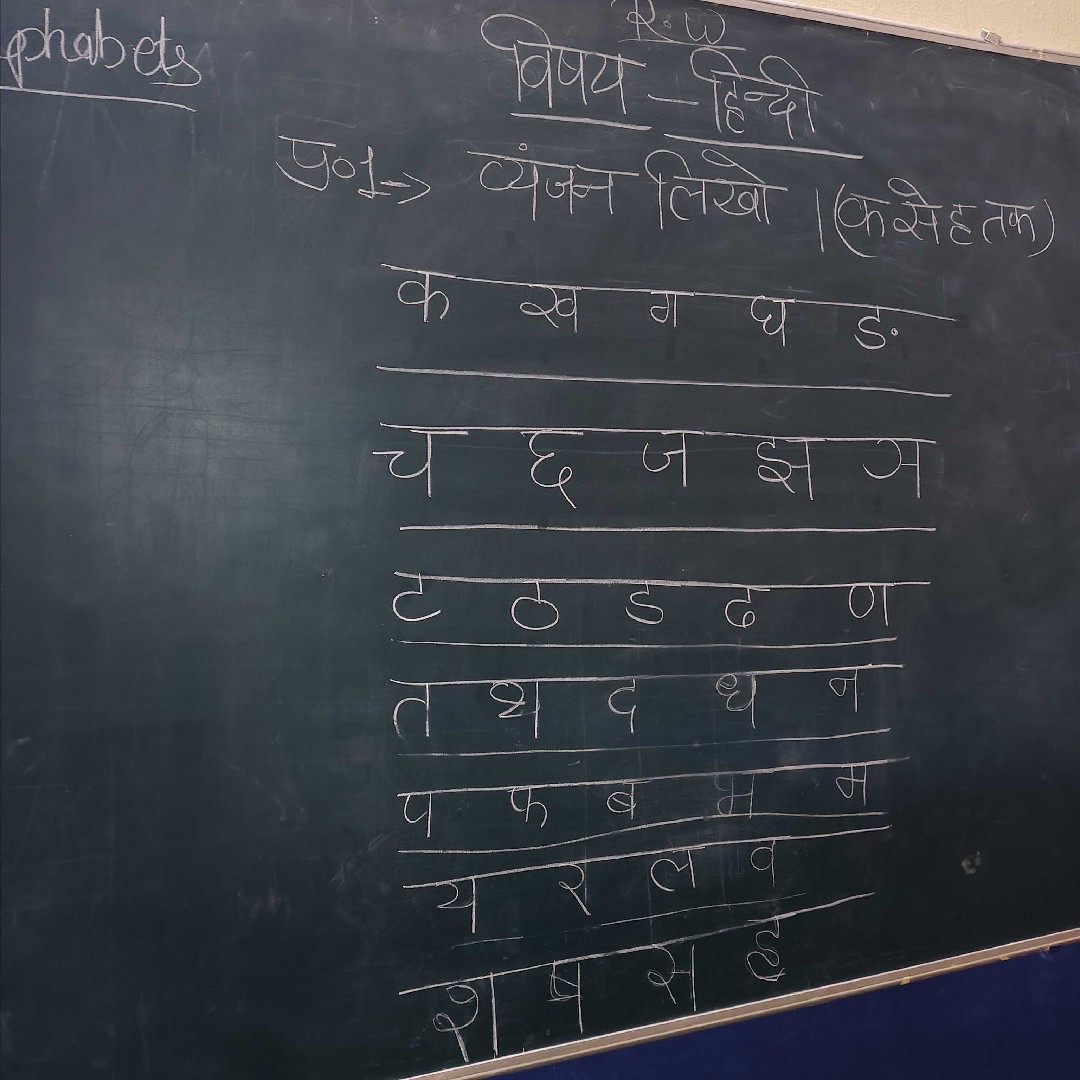 phabets
R.W
विषय - हिन्दी
प्र०1-> व्यंजन लिखो । (क से ह तक)
क ख ग घ ङ
च छ ज झ ञ
ट ठ ड ढ ण
त थ द ध न
प फ ब भ म
य र ल व
श ष स ह